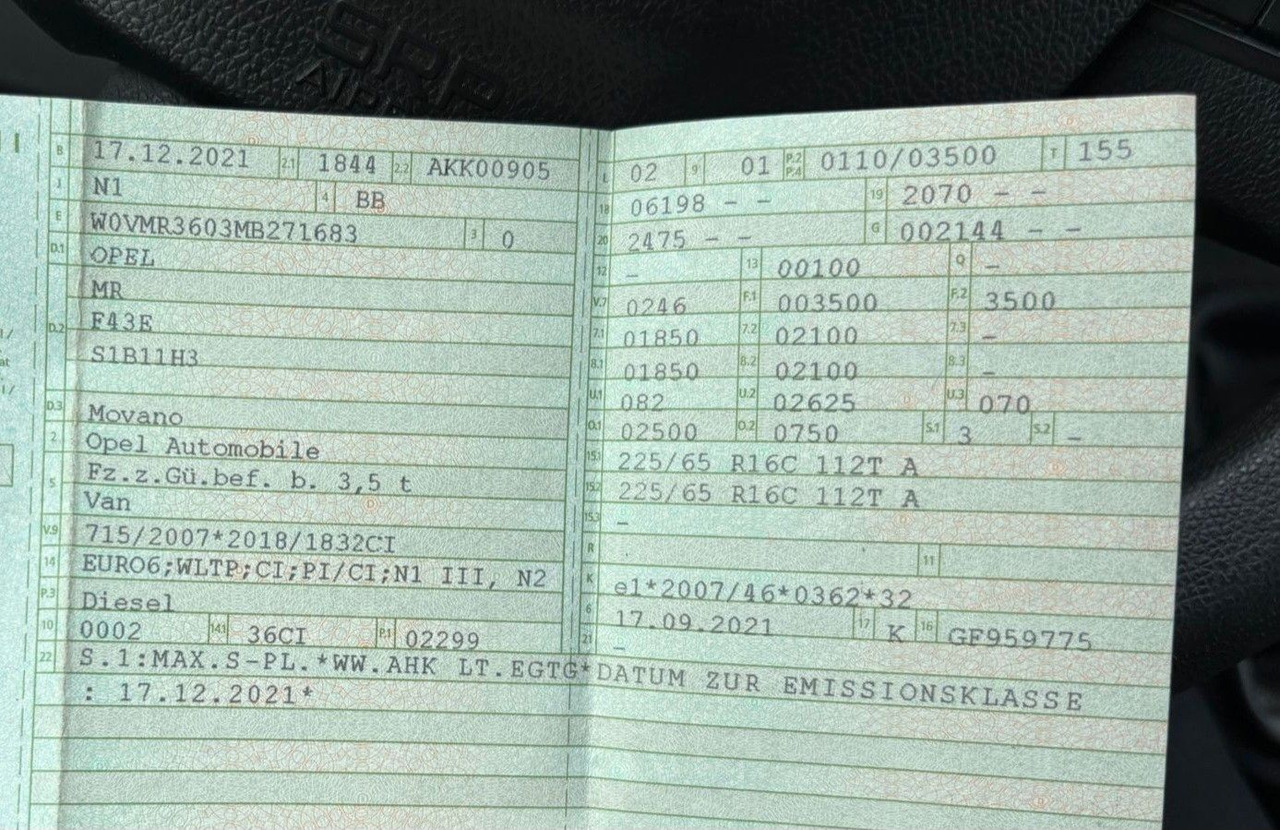 SRP
AIR
B 17.12.2021 2.1 1844 2.2 AKK00905
J N1 4 BB
E W0VMR3603MB271683 3 0
D.1 OPEL
MR
D.2 F43E
S1B11H3
D.3 Movano
2 Opel Automobile
5 Fz.z.Gü.bef. b. 3,5 t
Van
V.9 715/2007*2018/1832CI
14 EURO6;WLTP;CI;PI/CI;N1 III, N2
P.3 Diesel
10 0002 14.1 36CI P.1 02299
L 02 9 01 P.2 P.4 0110/03500 T 155
18 06198 – – 19 2070 – –
20 2475 – – G 002144 – –
12 – 13 00100 Q –
V.7 0246 F.1 003500 F.2 3500
7.1 01850 7.2 02100 7.3 –
8.1 01850 8.2 02100 8.3 –
U.1 082 U.2 02625 U.3 070
O.1 02500 O.2 0750 S.1 3 S.2 –
15.1 225/65 R16C 112T A
15.2 225/65 R16C 112T A
15.3 –
R 11
K e1*2007/46*0362*32
6 17.09.2021 17 K 16 GF959775
21 –
22 S.1:MAX.S-PL.*WW.AHK LT.EGTG*DATUM ZUR EMISSIONSKLASSE
: 17.12.2021*